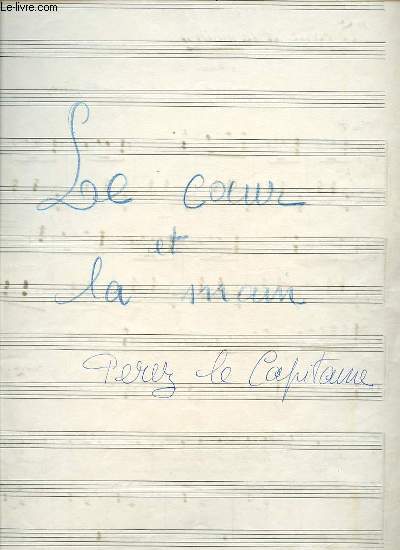 Le-livre.com
Le cœur
et
la main
Perez le Capitaine